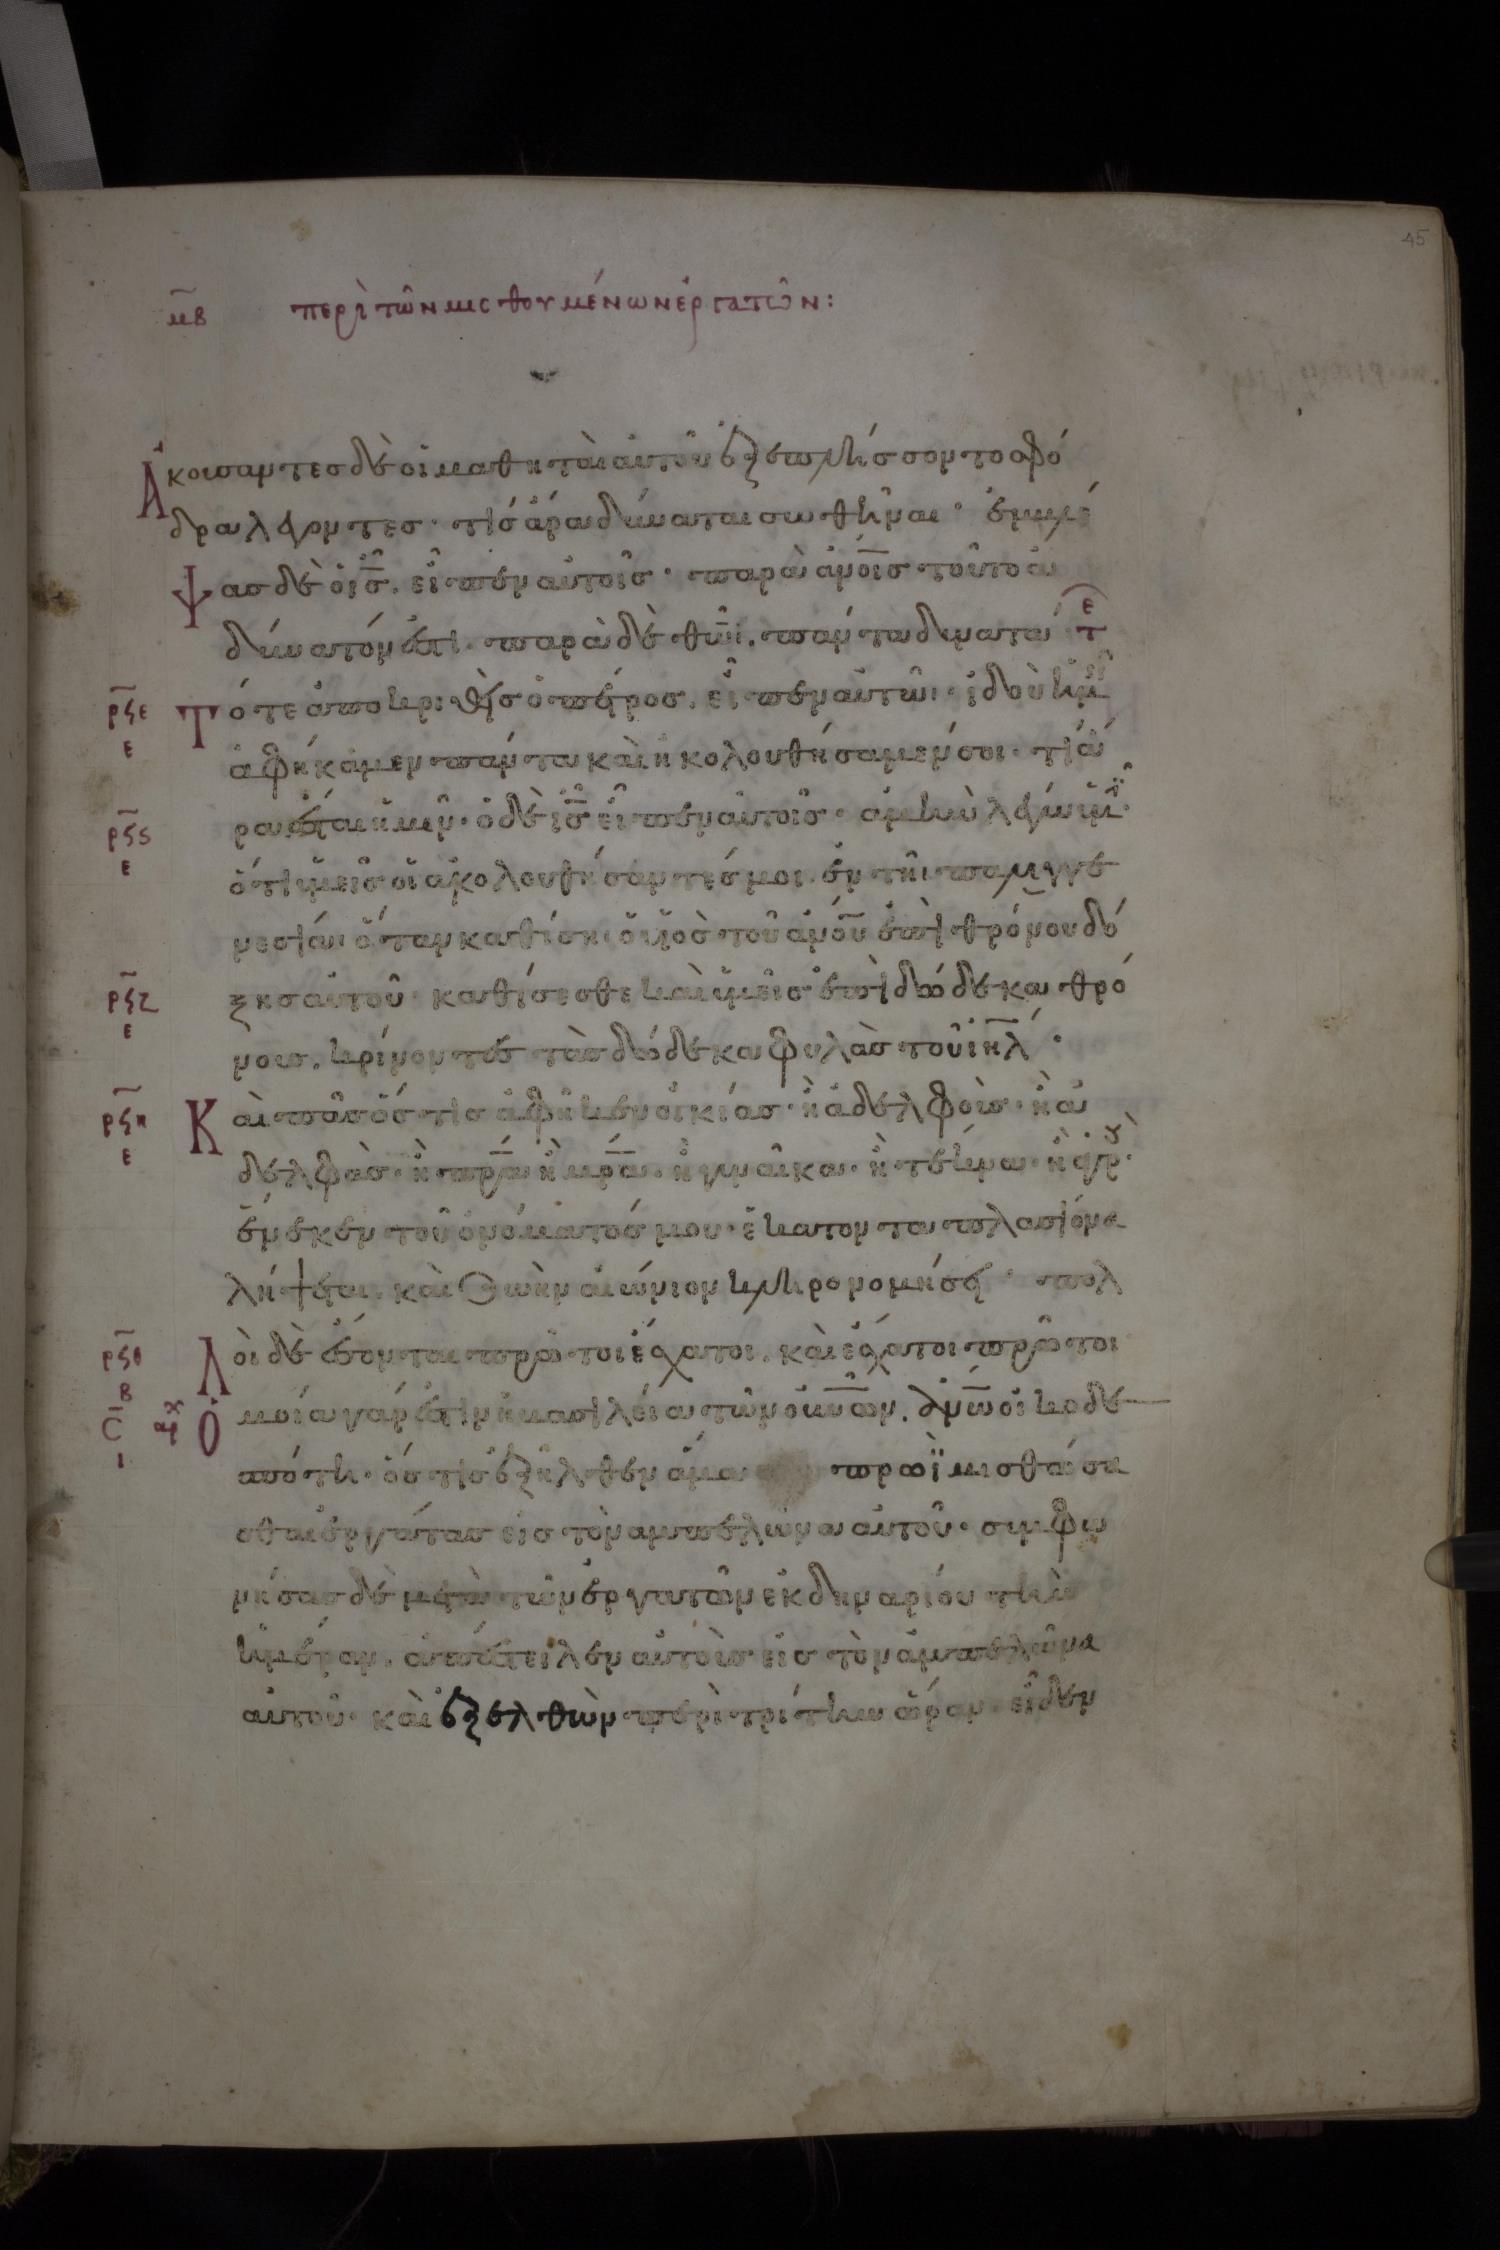 45
μ̅β̅ περὶ τῶν μισθουμένων ἐργατῶν:
Ἀκούσαντες δὲ οἱ μαθηταὶ αὐτοῦ ἐξεπλήσσοντο σφό
δρα λέγοντες· τίς ἄρα δύναται σωθῆναι· ἐμβλέ
Ψας δὲ ὁ ι̅ς̅. εἶπεν αὐτοῖς· παρὰ ἀν̅οις τοῦτο ἀ
δύνατόν ἐστι. παρὰ δὲ θ̅ω̅ι. πάντα δυνατά τ̅ε̅
ρ̅ϟε ε Τότε ἀποκριθεὶς ὁ πέτρος. εἶπεν αὐτῶι· ἰδοὺ ἡμεῖς
ἀφήκαμεν πάντα καὶ ἠκολουθήσαμέν σοι· τί ἄ
ρ̅ϟς ε ρα ἔσται ἡμῖν· ὁ δὲ ι̅ς̅ εἶπεν αὐτοῖς· ἀμὴν λέγω ὑμῖν·
ὅτι ὑμεῖς οἱ ἀκολουθήσαντές μοι. ἐν τῆι παλιγγε
νεσίαι ὅταν καθίσηι ὁ υἱὸς τοῦ ἀν̅ο̅υ̅ ἐπὶ θρόνου δό
ρ̅ϟζ ε ξης αὐτοῦ· καθίσεσθε καὶ ὑμεῖς ἐπὶ δώδεκα θρό
νους. κρίνοντες τὰς δώδεκα φυλὰς τοῦ ι̅η̅λ·
ρ̅ϟη ε Καὶ πᾶς ὅστις ἀφῆκεν οἰκίας· ἢ ἀδελφοὺς· ἢ ἀ
δελφὰς· ἢ π̅ρ̅α̅ ἢ μ̅ρ̅α̅. ἢ γυναῖκα· ἢ τέκνα· ἢ ἀγρούς·
ἕνεκεν τοῦ ὀνόματός μου· ἑκατονταπλασίονα
λήψεται. καὶ ζωὴν αἰώνιον κληρονομήσει· πολ
ρ̅ϟθ β Λοὶ δὲ ἔσονται πρῶτοι ἔσχατοι. καὶ ἔσχατοι πρῶτοι
C̅ ι ἀρχ Ὁμοία γάρ ἐστιν ἡ βασιλεία τῶν οὐν̅ω̅ν. ἀν̅ω̅ οἰκοδε
σπότηι· ὅστις ἐξῆλθεν ἅμα πρωῒ μισθώσα
σθαι ἐργάτας εἰς τὸν ἀμπελῶνα αὐτοῦ· συμφω
νήσας δὲ μετὰ τῶν ἐργατῶν ἐκ δηναρίου τὴν
ἡμέραν. ἀπέστειλεν αὐτοὺς εἰς τὸν ἀμπελῶνα
αὐτοῦ· καὶ ἐξελθὼν περὶ τρίτην ὥραν. εἶδεν